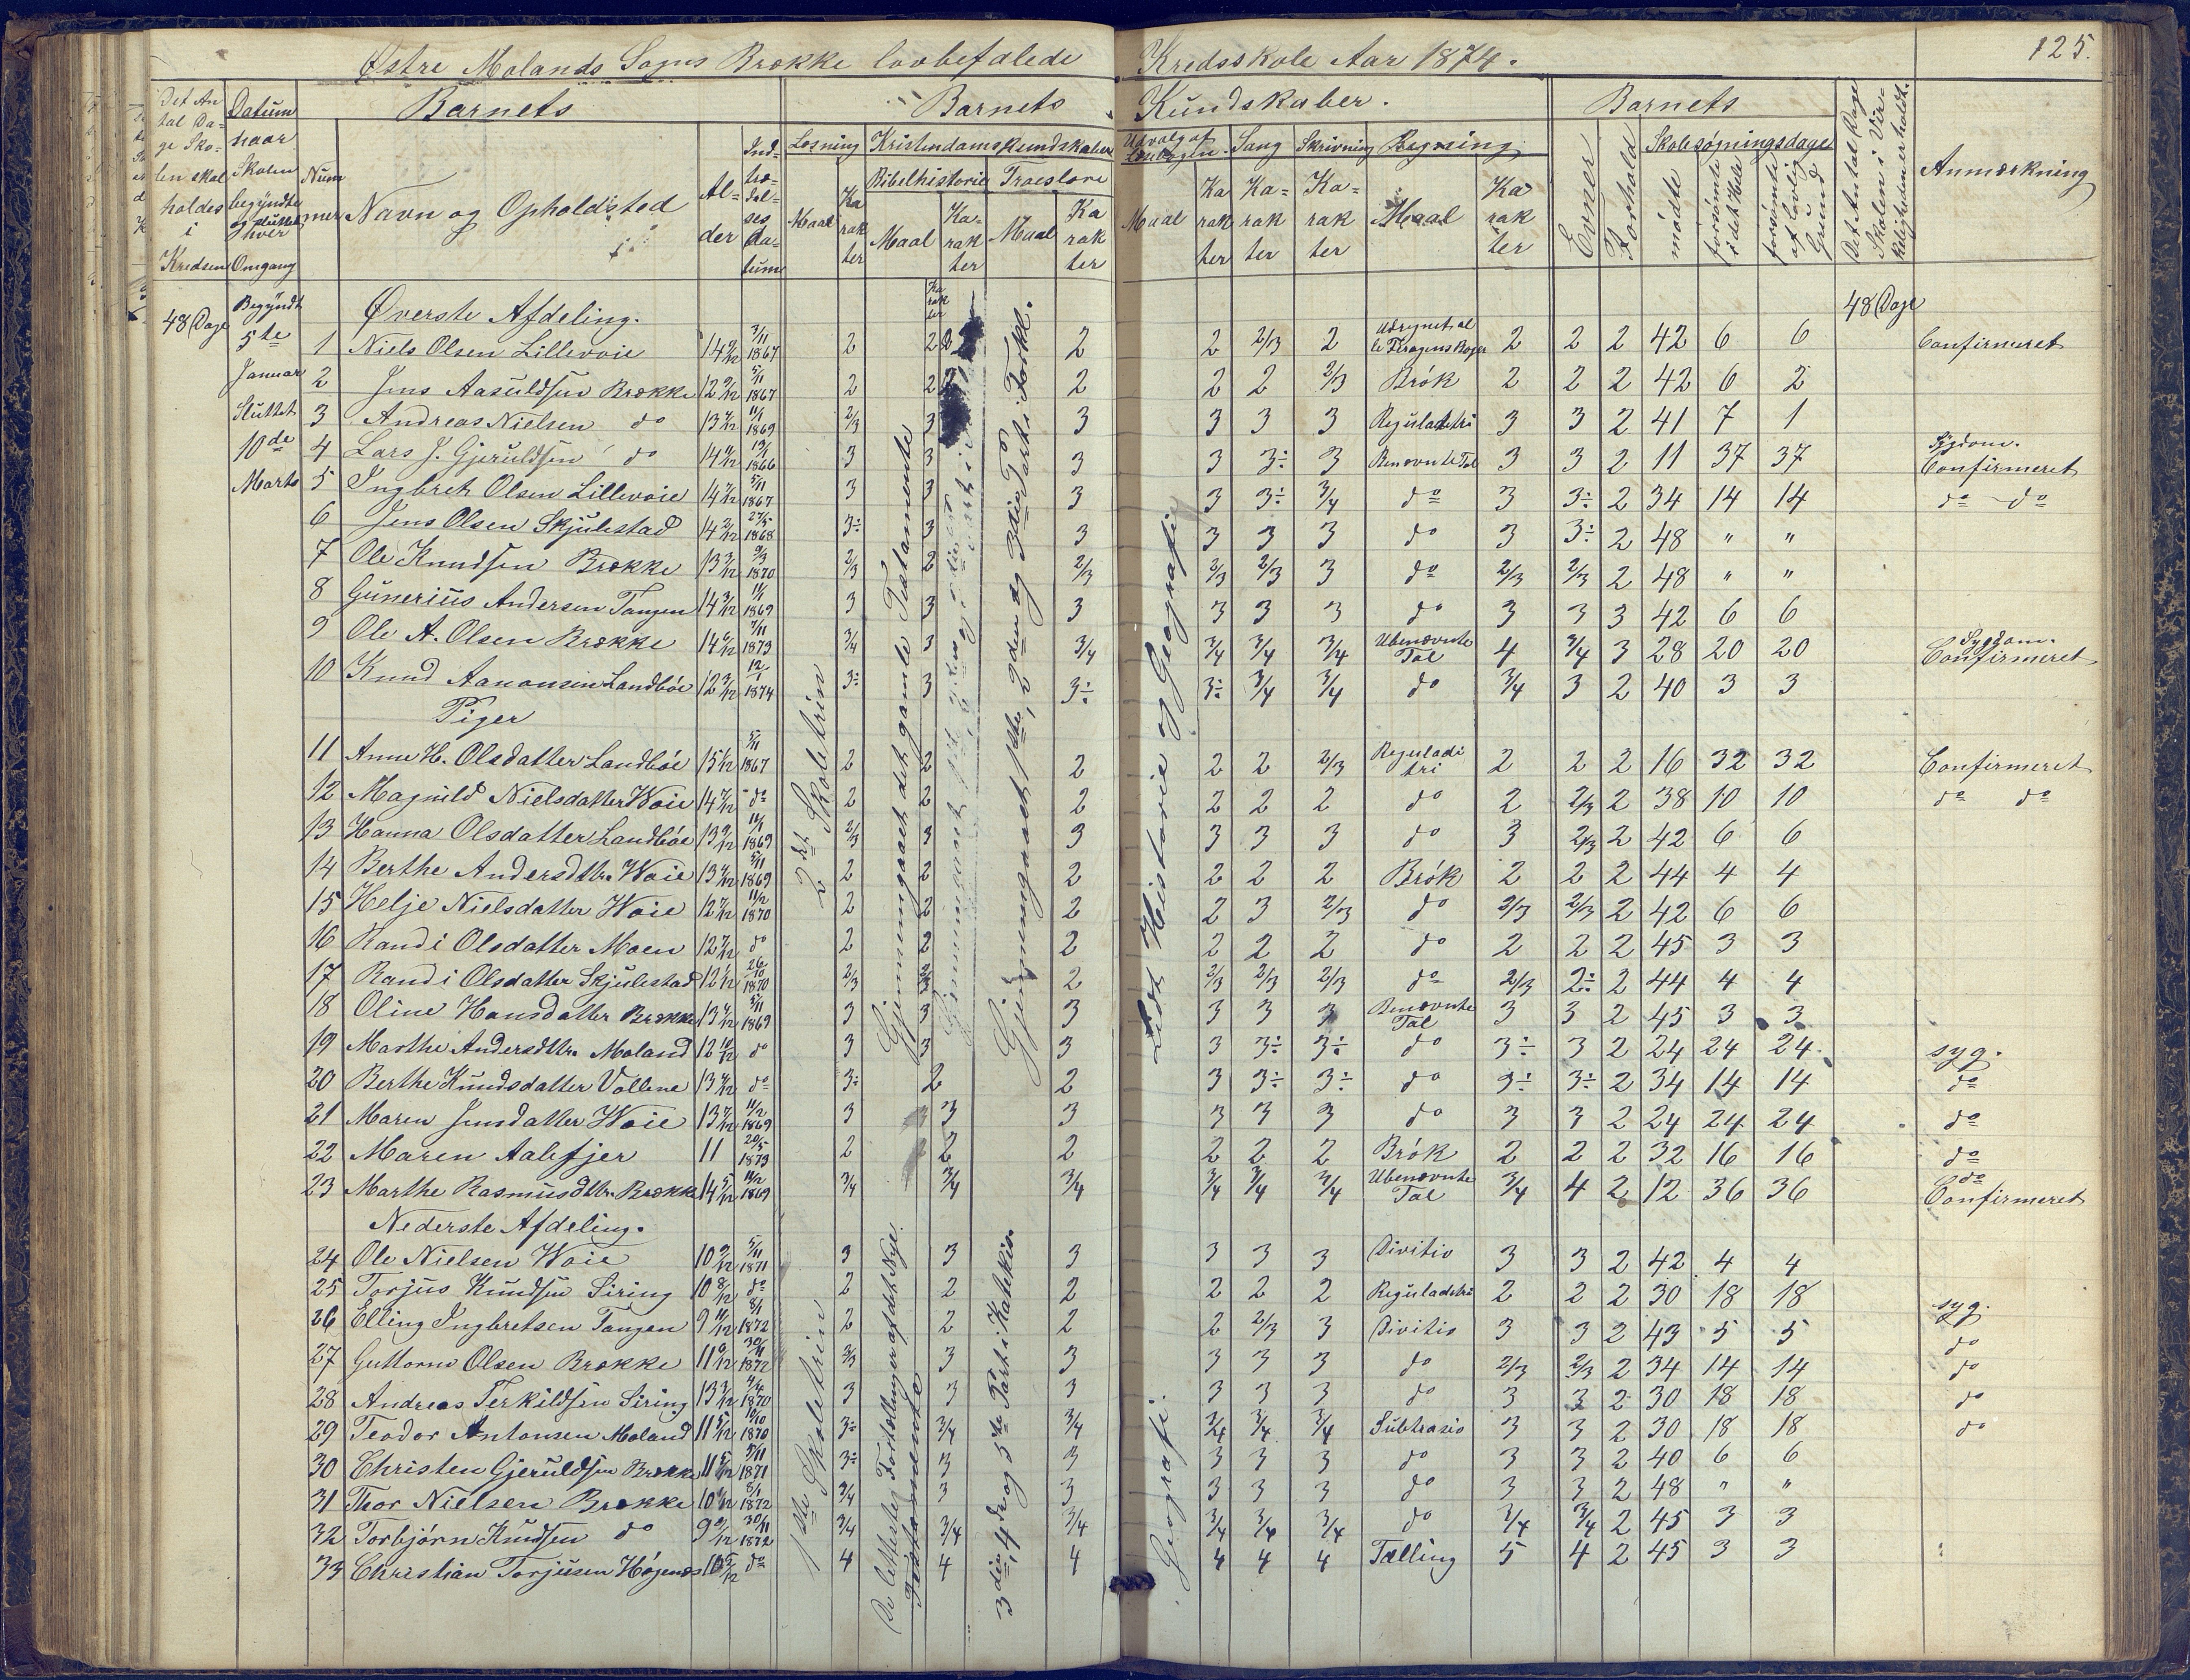 Østre Molands Sogns Brække lovbefalede Kredsskole Aar 1874. 125.
Det Antal Dage Skolen skal holdes i Kredsen
Datum naar Skolen begyndte og sluttet hver Omgang
Barnets
Nummer
Navn og Opholdsted
Alder
Indtrædelses datum
Barnets Kundskaber.
Læsning
Maal
Karakter
Kristendomskundskaber
Bibelhistorie
Maal
Karakter
Troeslære
Maal
Karakter
Udvalg af Læsebogen
Maal
Karakter
Sang
Karakter
Skrivning
Karakter
Regning
Maal
Karakter
Barnets
Evner
Forhold
Skolesøgningsdage
mødte
forsømte i det Hele
forsømte af lovlig Grund
Det Antal Dage Skolen i Virkeligheden er holdt.
Anmærkning
48 Dage
Begyndt 5te Januar Sluttet 10de Marts
Øverste Afdeling.
48 Dage
1 Niels Olsen Lillevoie 14 9/12 3/11 1867 2 2 2 2 2/3 2 2 2 2 42 6 6 Confirmeret
2 Jens Aasuldsen Brække 12 9/12 5/11 1867 2 2 2 2 2 2/3 Brök 2 2 2 42 6 2
3 Andreas Nielsen do 13 7/12 11/1 1869 2/3 3 3 3 3 3 Reguladetri 3 3 2 41 7 1
4 Lars J. Gjeruldsen do 1866 3 3 3 3 3÷ 3 Benævnte Tal 3 3 2 11 37 37 Sygdom. Confirmeret
5 Ingbret Olsen Lillevoie 14 7/12 5/11 1867 3 3 3 3 3÷ 3/4 do 3 3÷ 2 34 14 14 do do
6 Jens Olsen Skjulestad 14 2/12 27/5 1868 3÷ 3 3 3 3 3 do 3 3÷ 2 48 " "
7 Ole Knudsen Brække 13 3/12 9/3 1870 2/3 2 2/3 2/3 2/3 3 do 2/3 2/3 2 48 " "
8 Gunerius Andersen Tangen 14 3/12 11/1 1869 3 3 3 3 3 3 do 3 3 3 42 6 6
9 Ole A. Olsen Brække 14 6/12 7/11 1873 3/4 3 3/4 3/4 3/4 3/4 Ubenævnte Tal 4 3/4 3 28 20 20 Sygdom. Confirmeret
10 Knud Aanonsen Landbøe 12 3/12 12/1 1874 3÷ 3 3÷ 3÷ 3/4 3/4 do 3/4 3 2 40 3 3
Piger
11 Anne H. Olsdatter Landbøe 15 1/12 5/11 1867 2 2 2 2 2 2/3 Reguladetri 2 2 2 16 32 32 Confirmeret
12 Magnild Nielsdatter Woie 14 7/12 do 2 2 2 2 2 2 do 2 2/3 2 38 10 10 do do
13 Hanna Olsdatter Landbøe 13 9/12 11/1 1869 2/3 3 3 3 3 3 do 3 2/3 2 42 6 6
14 Berthe Andersdttr. Woie 13 4/12 5/11 1869 2 2 2 2 2 2 Brök 2 2 2 44 4 4
15 Helje Nielsdatter Woie 12 7/12 11/2 1870 2 2 2 2 3 2/3 do 2/3 2/3 2 42 6 6
16 Randi Olsdatter Moen 12 7/12 do 2 2 2 2 2 2 do 2 2 2 45 3 3
17 Randi Olsdatter Skjulestad 12 1/12 26/10 1870 2/3 2/3 2 2/3 2/3 2/3 do 2/3 2÷ 2 44 4 4
18 Oline Hansdatter Brække 13 4/12 5/11 1869 3 3 3 3 3 3 Benævnte Tal 3 3 2 45 3 3
19 Marthe Andersdttr. Moland 12 10/12 do 3 3 3 3 3÷ 3÷ do 3÷ 3 2 24 24 24 syg.
20 Berthe Knudsdatter Vollene 13 4/12 do 3÷ 2 2 3 3÷ 3÷ do 3÷ 3÷ 2 34 14 14 do
21 Maren Jensdatter Woie 13 7/12 11/2 1869 3 3 3 3 3 3 do 3 3 2 24 24 24 do
22 Maren Aalefjer 11 20/5 1873 2 2 2 2 2 2 Brök 2 2 2 32 16 16 do
23 Marthe Rasmusdttr. Brække 14 5/12 11/2 1869 3/4 3/4 3/4 3/4 3/4 3/4 Ubenævnte Tal 3/4 4 2 12 36 36 do Confirmeret
Nederste Afdeling.
24 Ole Nielsen Woie 10 9/12 5/11 1871 3 3 3 3 3 3 Divitio 3 3 2 42 4 4
25 Torjus Knudsen Siring 10 8/12 do 2 2 2 2 2 2 Reguladetri 2 2 2 30 18 18 syg.
26 Elling Ingbretsen Tangen 9 11/12 8/1 1872 2 2 2 2 2/3 3 Divitio 3 3 2 43 5 5 do
27 Guttorm Olsen Brække 11 6/12 30/11 1872 2/3 3 3 3 3 3 do 2/3 2/3 2 34 14 14 do
28 Andreas Terkildsen Siring 13 3/12 4/4 1870 3 3 3 3 3 3 do 3 3 2 30 18 18 do
29 Teodor Antonsen Moland 11 5/12 10/10 1870 3÷ 3/4 3/4 3/4 3/4 3/4 Subtrasio 3 3 2 30 18 18 do
30 Christen Gjeruldsen Brække 11 5/12 5/11 1871 3÷ 3 3 3 3 3 do 3 3 2 40 6 6
31 Thor Nielsen Brække 10 8/1 1872 3/4 3 3 3 3 3 do 3 3 2 48 " "
32 Torbjørn Knudsen do 9 9/12 30/11 1872 3/4 3/4 3/4 3/4 3/4 3/4 do 3/4 3/4 2 45 3 3
33 Christian Torjusen Högenæs 10 5/12 do 4 4 4 4 4 4 Tælling 5 4 2 45 3 3
2det Skoletrin
Gjennemgaaet det gamle Testamente
Gjennemgaaet 1ste, 2den og 3die Part i Forkl.
Lidt Historie og Geografi
1ste Skoletrin
De letteste Fortællinger af det Nye Testamente
3die, 4de og 5te Part i Katekism
Geografi.